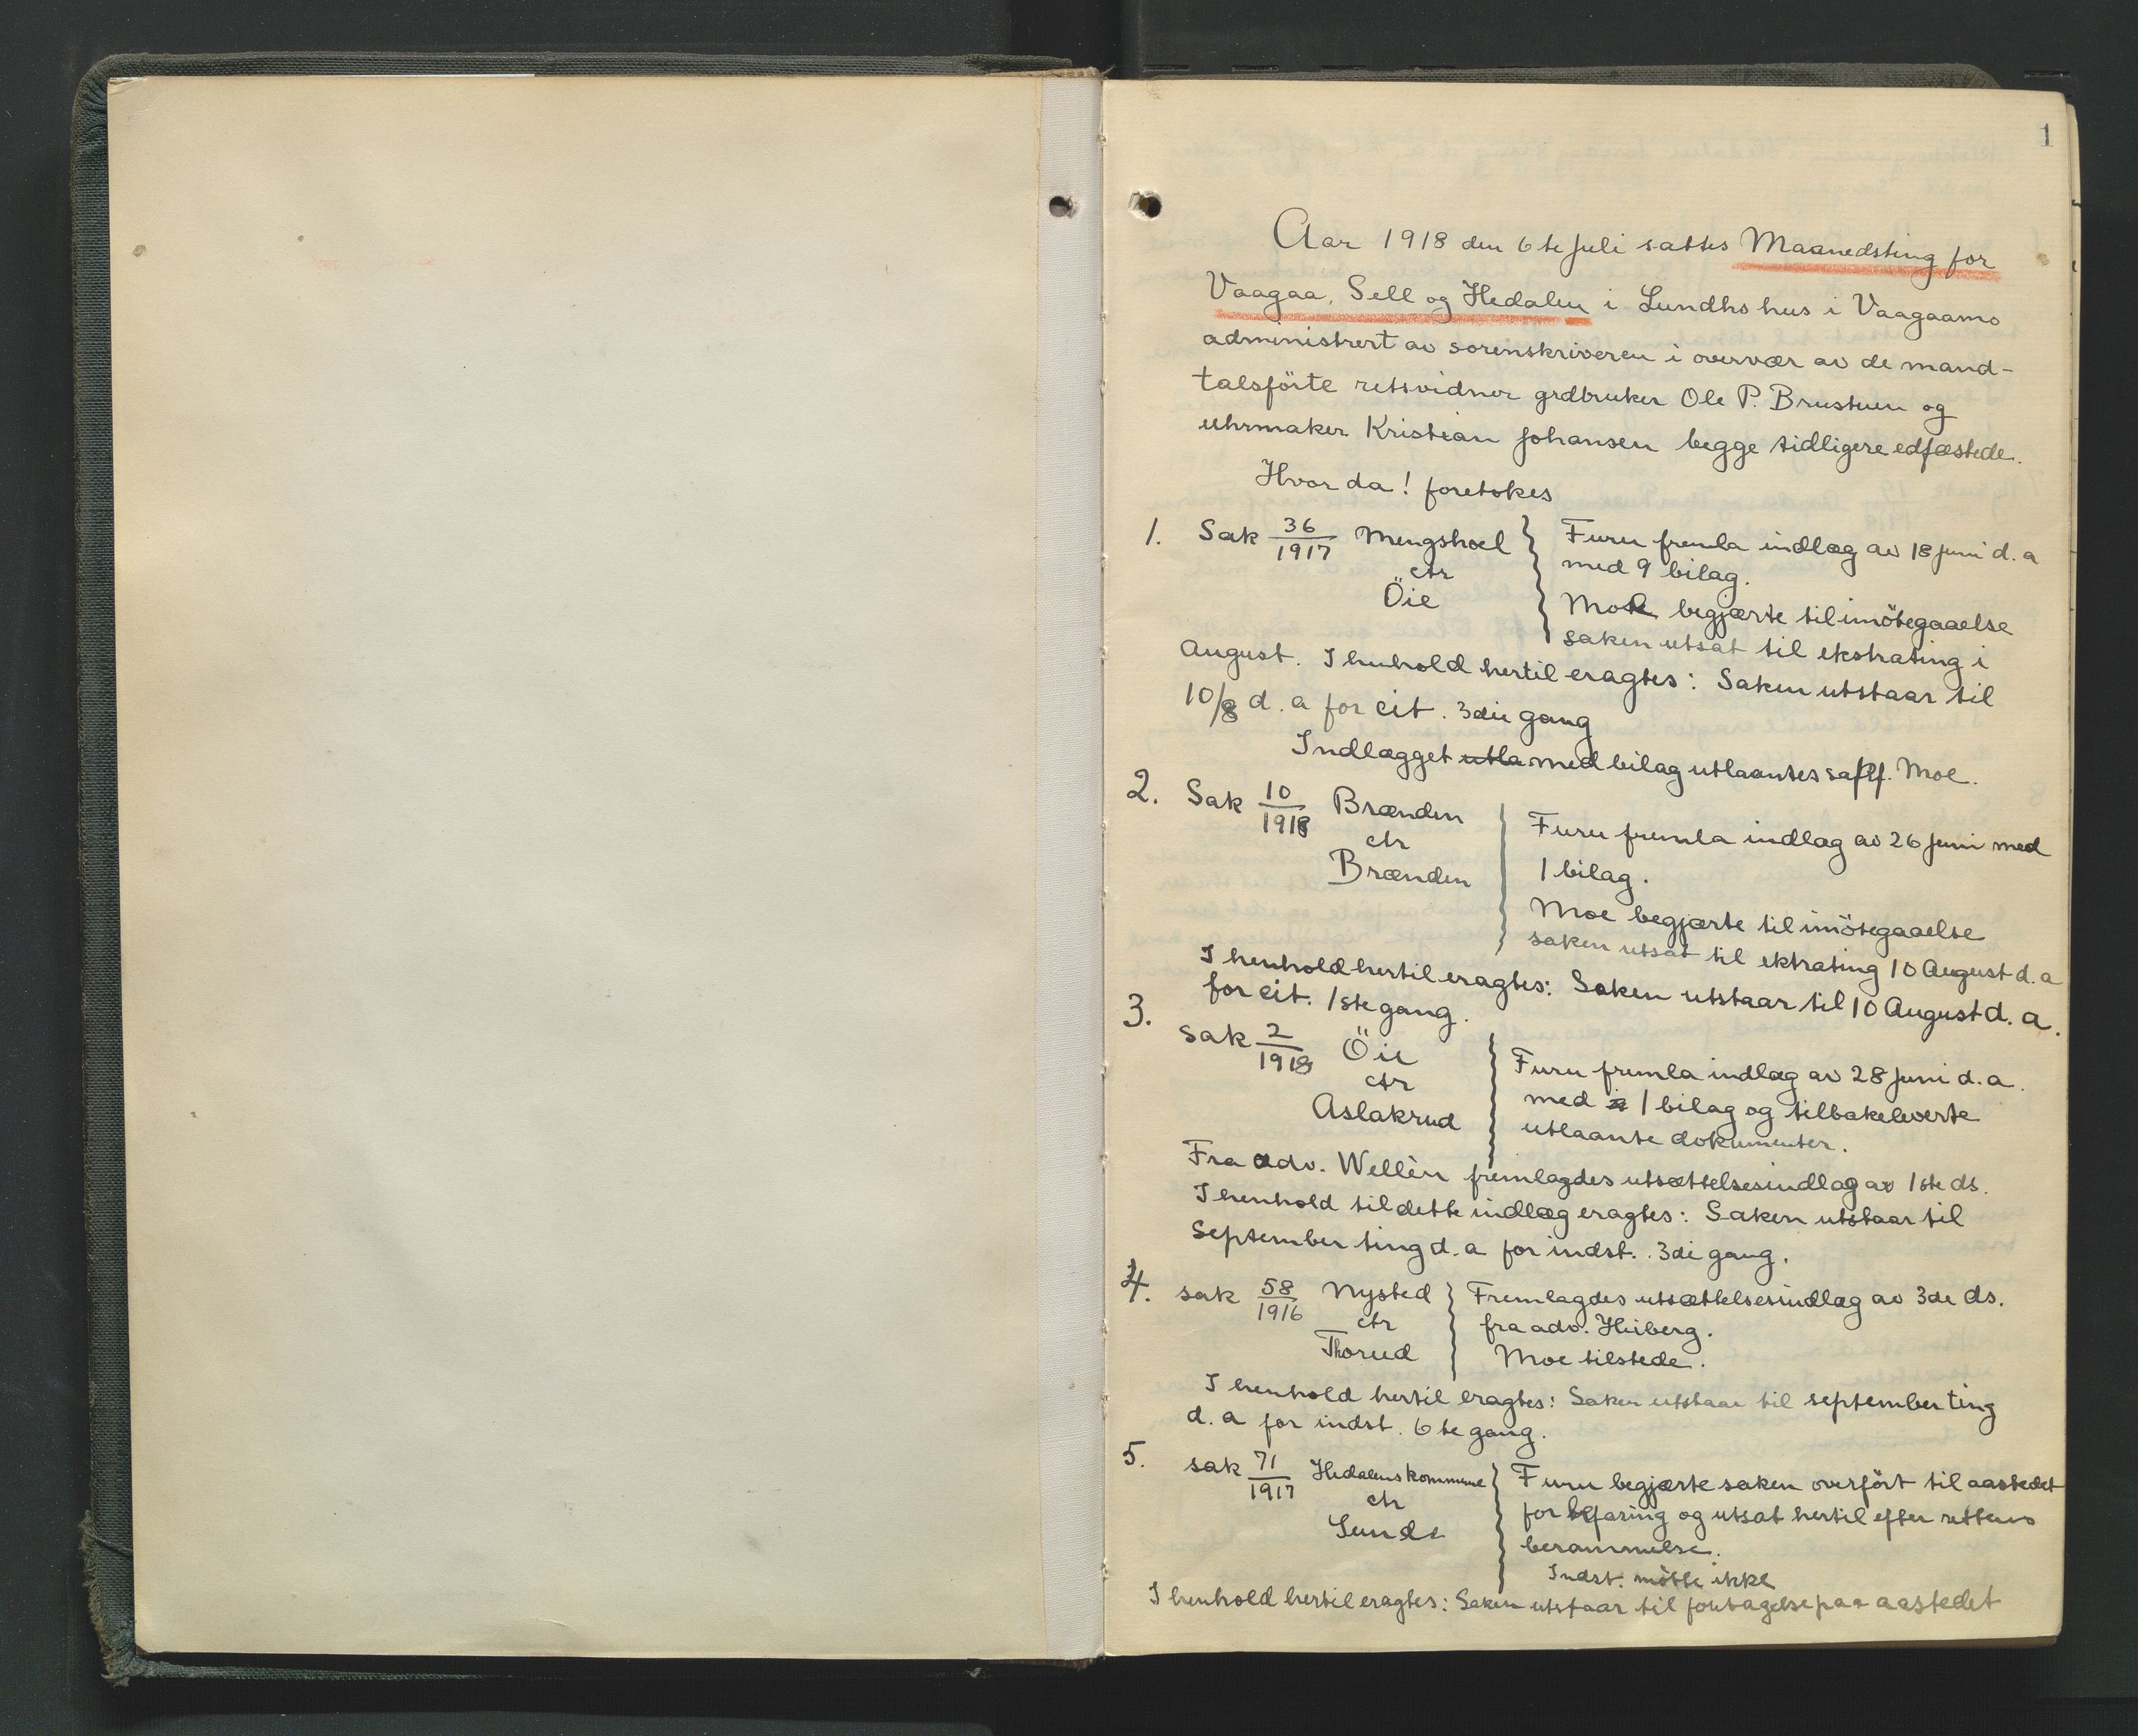 1
Aar 1918 den 6te juli sattes Maanedsting for
Vaagaa, Sell og Hedalen i Lundhs hus i Vaagaamo
administrert av sorenskriveren i overvær av de mand-
talsförte retsvidner grdbruker Ole P. Brustuen og
uhrmaker Kristian Johansen begge tidligere edfæstede.
Hvor da! foretokes
1. Sak 36/1917 Mengshoel ctr Öie
Furu fremla indlæg av 18 juni d. a
med 9 bilag.
Moe begjærte til imötegaaelse
saken utsat til ekstrating i
August. I henhold hertil eragtes: Saken utstaar til
10/8 d. a for cit. 3die gang
Indlægget utla med bilag utlaantes saff. Moe.
2. Sak 10/1918 Brænden ctr Brænden
Furu fremla indlæg av 26 juni med
1 bilag.
Moe begjærte til imötegaaelse
saken utsat til ektrating 10 August d. a
I henhold hertil eragtes: Saken utstaar til 10 August d. a.
for cit. 1ste gang.
3. Sak 2/1918 Öie ctr Aslakrud
Furu fremla indlæg av 28 juni d. a.
med 1 bilag og tilbakeleverte
utlaante dokumenter.
Fra adv. Wellèn fremlagdes utsættelsesindlæg av 1ste ds.
I henhold til dette indlæg eragtes: Saken utstaar til
September ting d. a for indst. 3di gang.
4. sak 58/1916 Nysted ctr Thorud
Fremlagdes utsættelsesindlæg av 3de ds.
fra adv. Heiberg.
Moe tilstede.
I henhold hertil eragtes: Saken utstaar til september ting
d. a for indst. 6te gang.
5. sak 71/1917 Hedalens kommune ctr Sunde
Furu begjærte saken overfört til aastedet
for befaring og utsat hertil efter rettens
berammelse.
Indst. mötte ikke
I henhold hertil eragtes: Saken utstaar til foretagelse paa aastedet